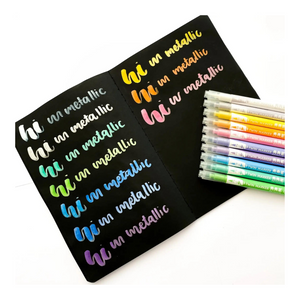 hi un metallic
hi un metallic
hi un metallic
hi un metallic
hi un metallic
hi un metallic
hi un metallic
hi un metallic
hi un metallic
hi un metallic